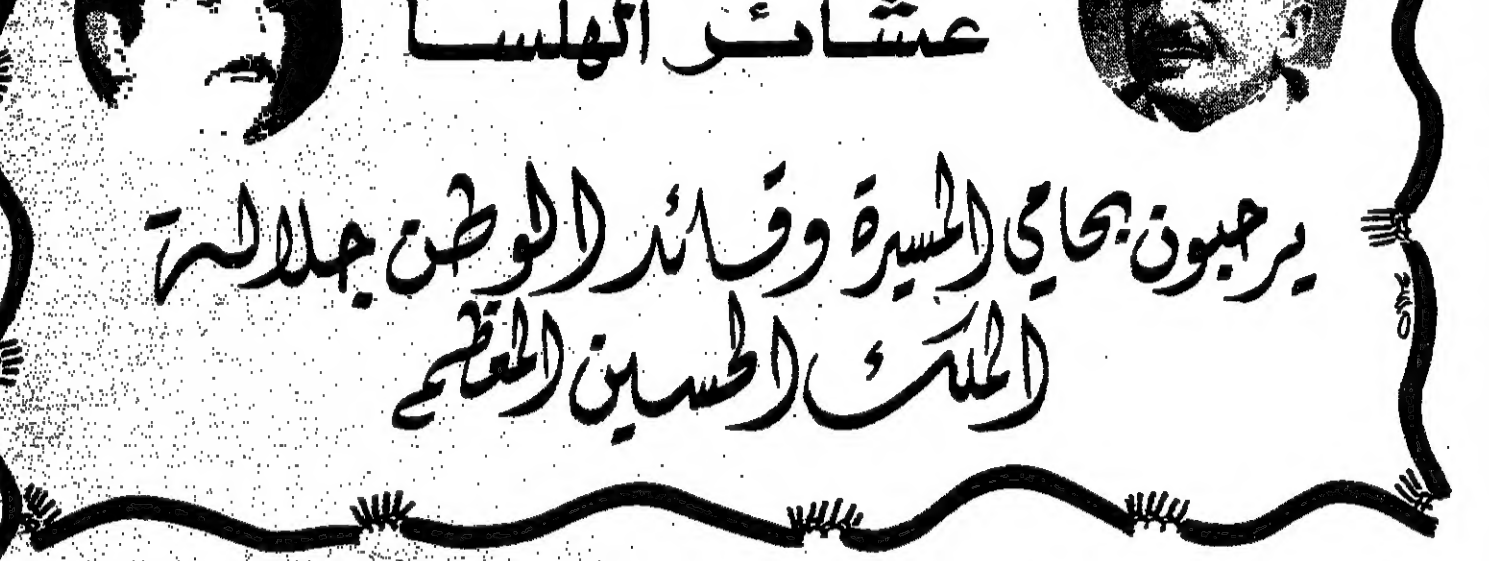 عشائر الهلسا
يرحبون بحامي المسيرة وقائد الوطن جلالة
الملك الحسين المعظم